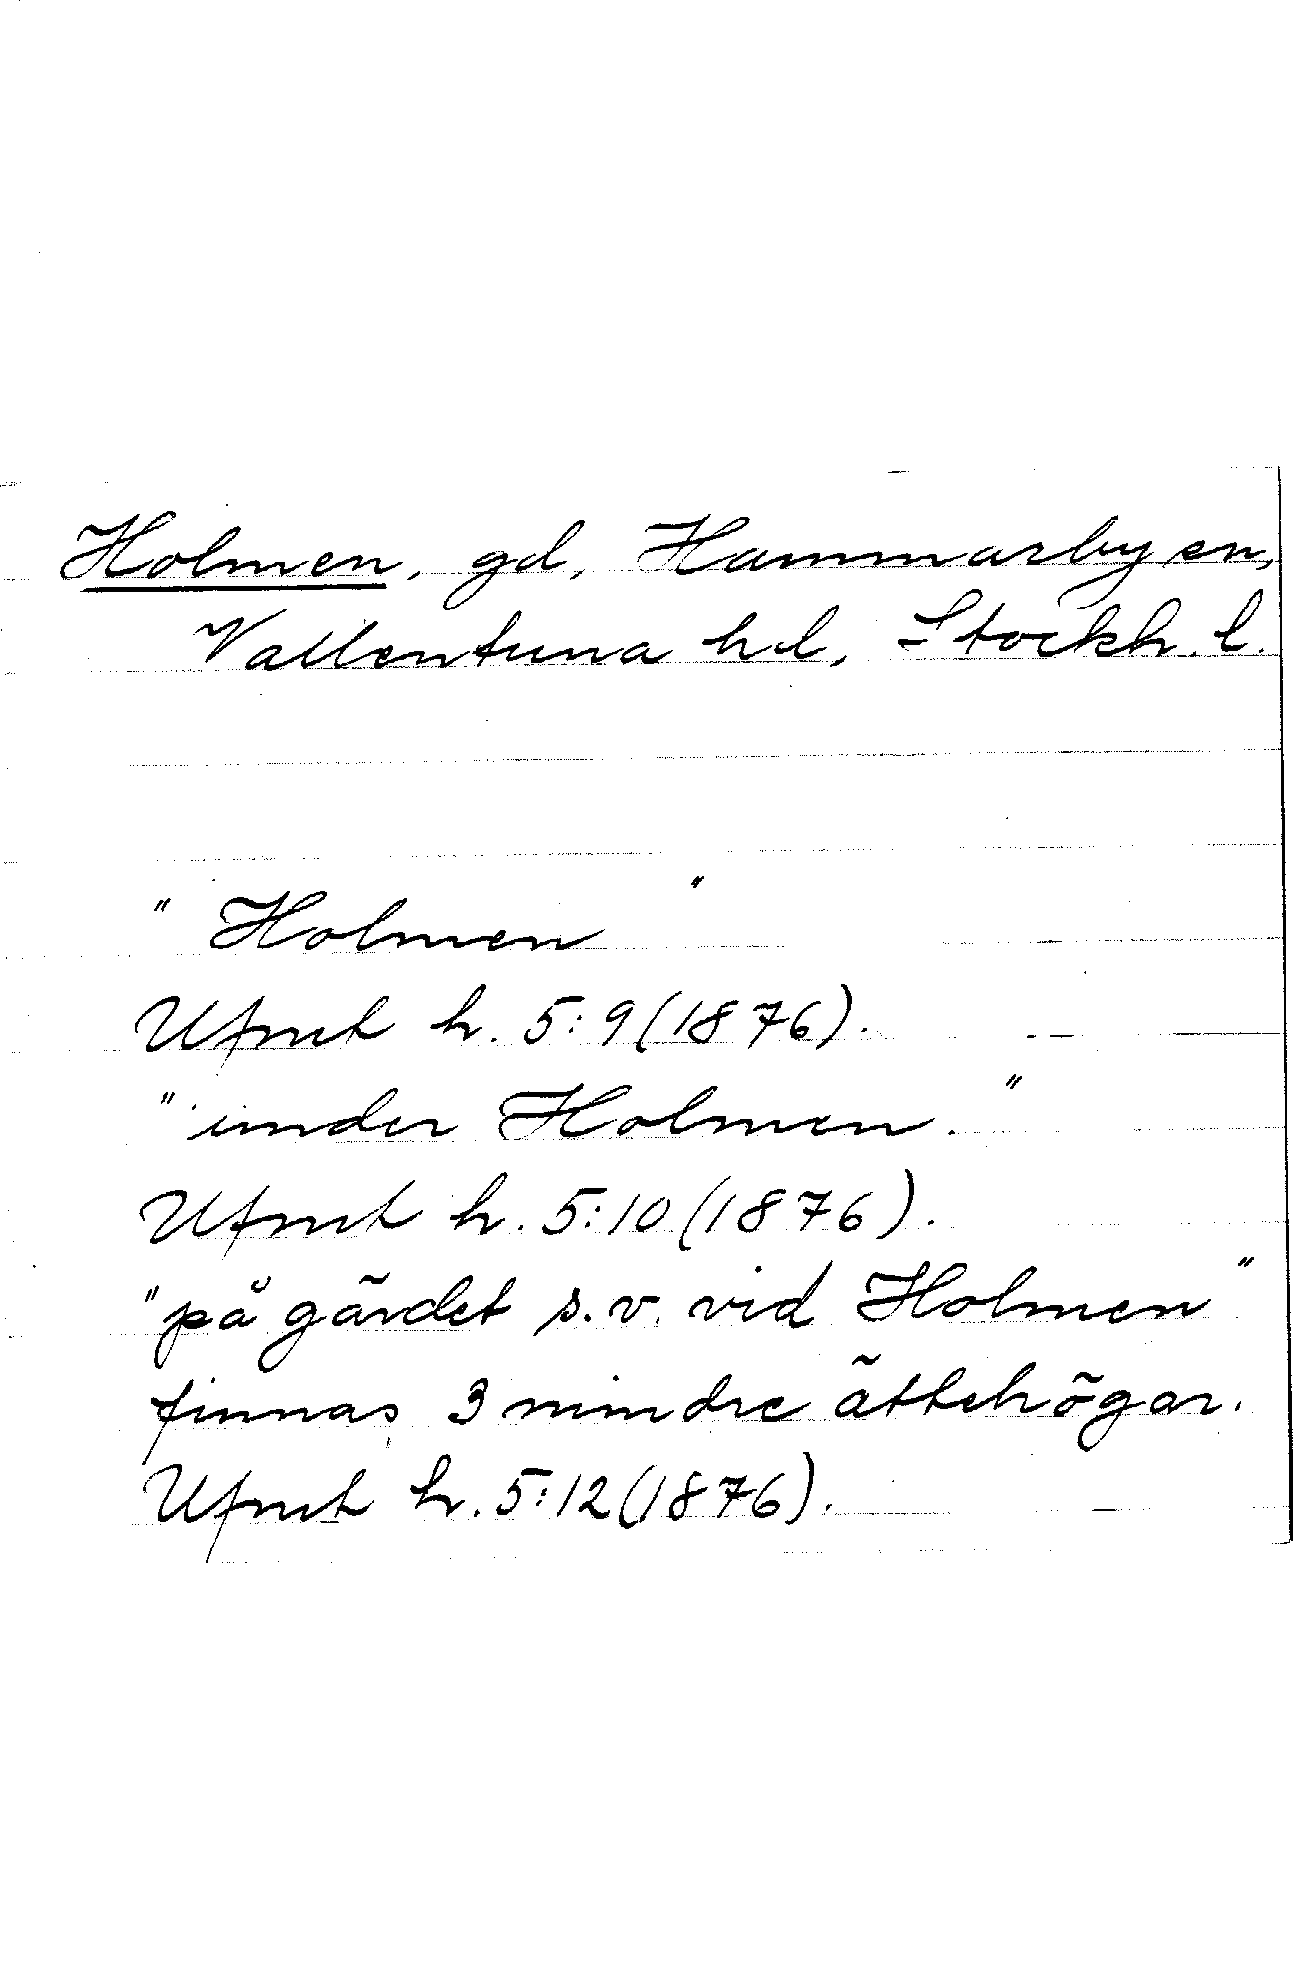 Holmen, gd, Hammarby sn,
Vallentuna hd, Stockh. l.
" Holmen "
Ufmt h. 5:9 (1876).
" under Holmen. "
Ufmt h. 5:10 (1876).
"på gärdet s.v. vid Holmen"
finnas 3 mindre ättehögar.
Ufmt h. 5:12 (1876).